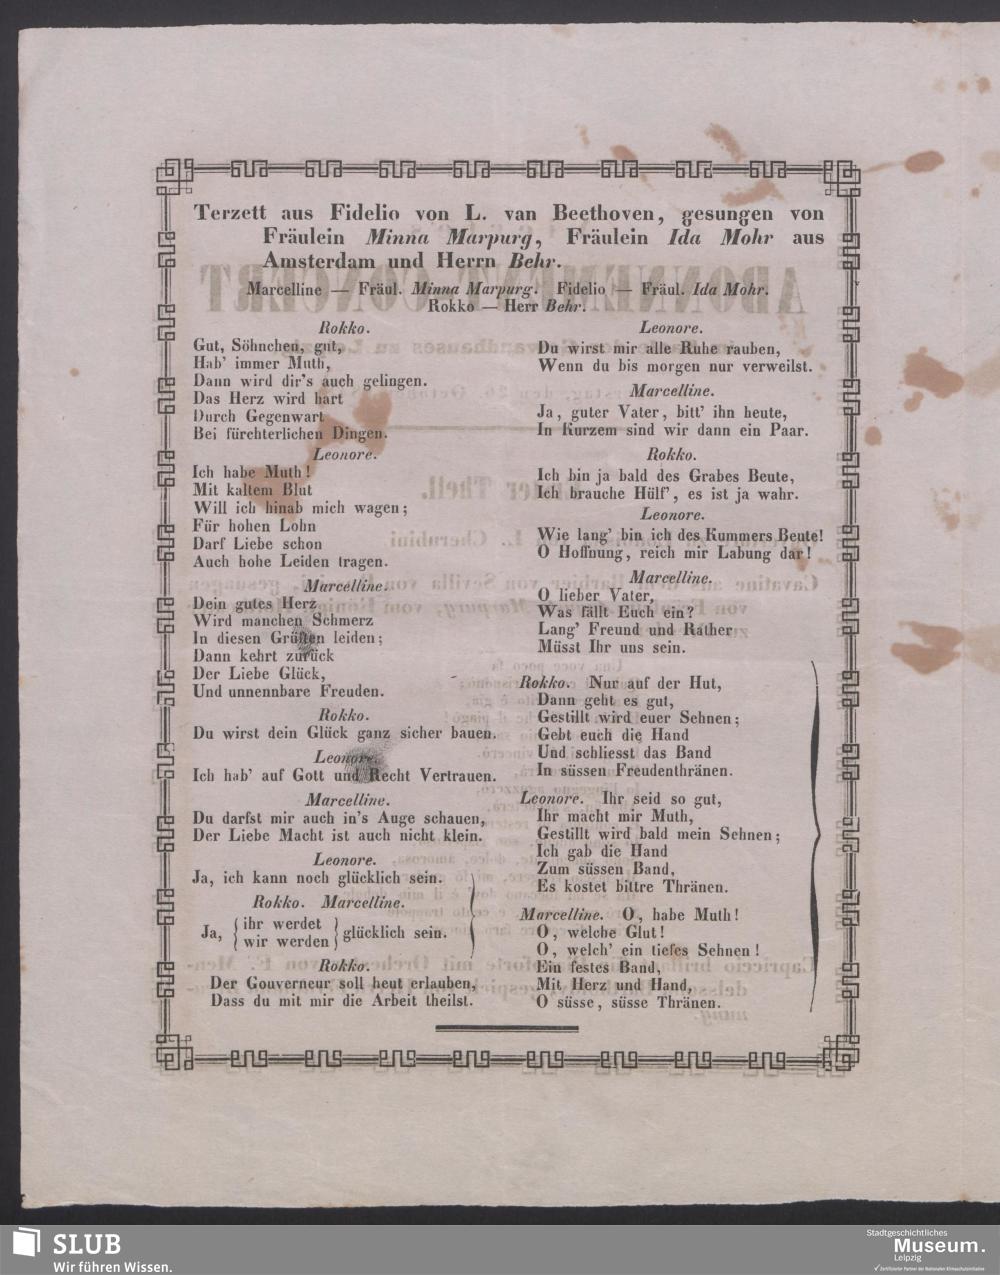 Terzett aus Fidelio von L. van Beethoven, gesungen von
Fräulein Minna Marpurg, Fräulein Ida Mohr aus
Amsterdam und Herrn Behr.
Marcelline — Fräul. Minna Marpurg. Fidelio — Fräul. Ida Mohr.
Rokko — Herr Behr.
Rokko.
Gut, Söhnchen, gut,
Hab' immer Muth,
Dann wird dir's auch gelingen.
Das Herz wird hart
Durch Gegenwart
Bei fürchterlichen Dingen.
Leonore.
Ich habe Muth!
Mit kaltem Blut
Will ich hinab mich wagen;
Für hohen Lohn
Darf Liebe schon
Auch hohe Leiden tragen.
Marcelline.
Dein gutes Herz
Wird manchen Schmerz
In diesen Grüften leiden;
Dann kehrt zurück
Der Liebe Glück,
Und unnennbare Freuden.
Rokko.
Du wirst dein Glück ganz sicher bauen.
Leonore.
Ich hab' auf Gott und Recht Vertrauen.
Marcelline.
Du darfst mir auch in's Auge schauen,
Der Liebe Macht ist auch nicht klein.
Leonore.
Ja, ich kann noch glücklich sein.
Rokko. Marcelline.
Ja, { ihr werdet } glücklich sein.
{ wir werden }
Rokko.
Der Gouverneur soll heut erlauben,
Dass du mit mir die Arbeit theilst.
Leonore.
Du wirst mir alle Ruhe rauben,
Wenn du bis morgen nur verweilst.
Marcelline.
Ja, guter Vater, bitt' ihn heute,
In Kurzem sind wir dann ein Paar.
Rokko.
Ich bin ja bald des Grabes Beute,
Ich brauche Hülf', es ist ja wahr.
Leonore.
Wie lang' bin ich des Kummers Beute!
O Hoffnung, reich mir Labung dar!
Marcelline.
O lieber Vater,
Was fällt Euch ein?
Lang' Freund und Rather
Müsst Ihr uns sein.
Rokko. Nur auf der Hut,
Dann geht es gut,
Gestillt wird euer Sehnen;
Gebt euch die Hand
Und schliesst das Band
In süssen Freudenthränen.
Leonore. Ihr seid so gut,
Ihr macht mir Muth,
Gestillt wird bald mein Sehnen;
Ich gab die Hand
Zum süssen Band,
Es kostet bittre Thränen.
Marcelline. O, habe Muth!
O, welche Glut!
O, welch' ein tiefes Sehnen!
Ein festes Band,
Mit Herz und Hand,
O süsse, süsse Thränen.
SLUB
Wir führen Wissen.
Stadtgeschichtliches
Museum.
Leipzig
Zertifizierter Partner der Nationalen Klimaschutzinitiative